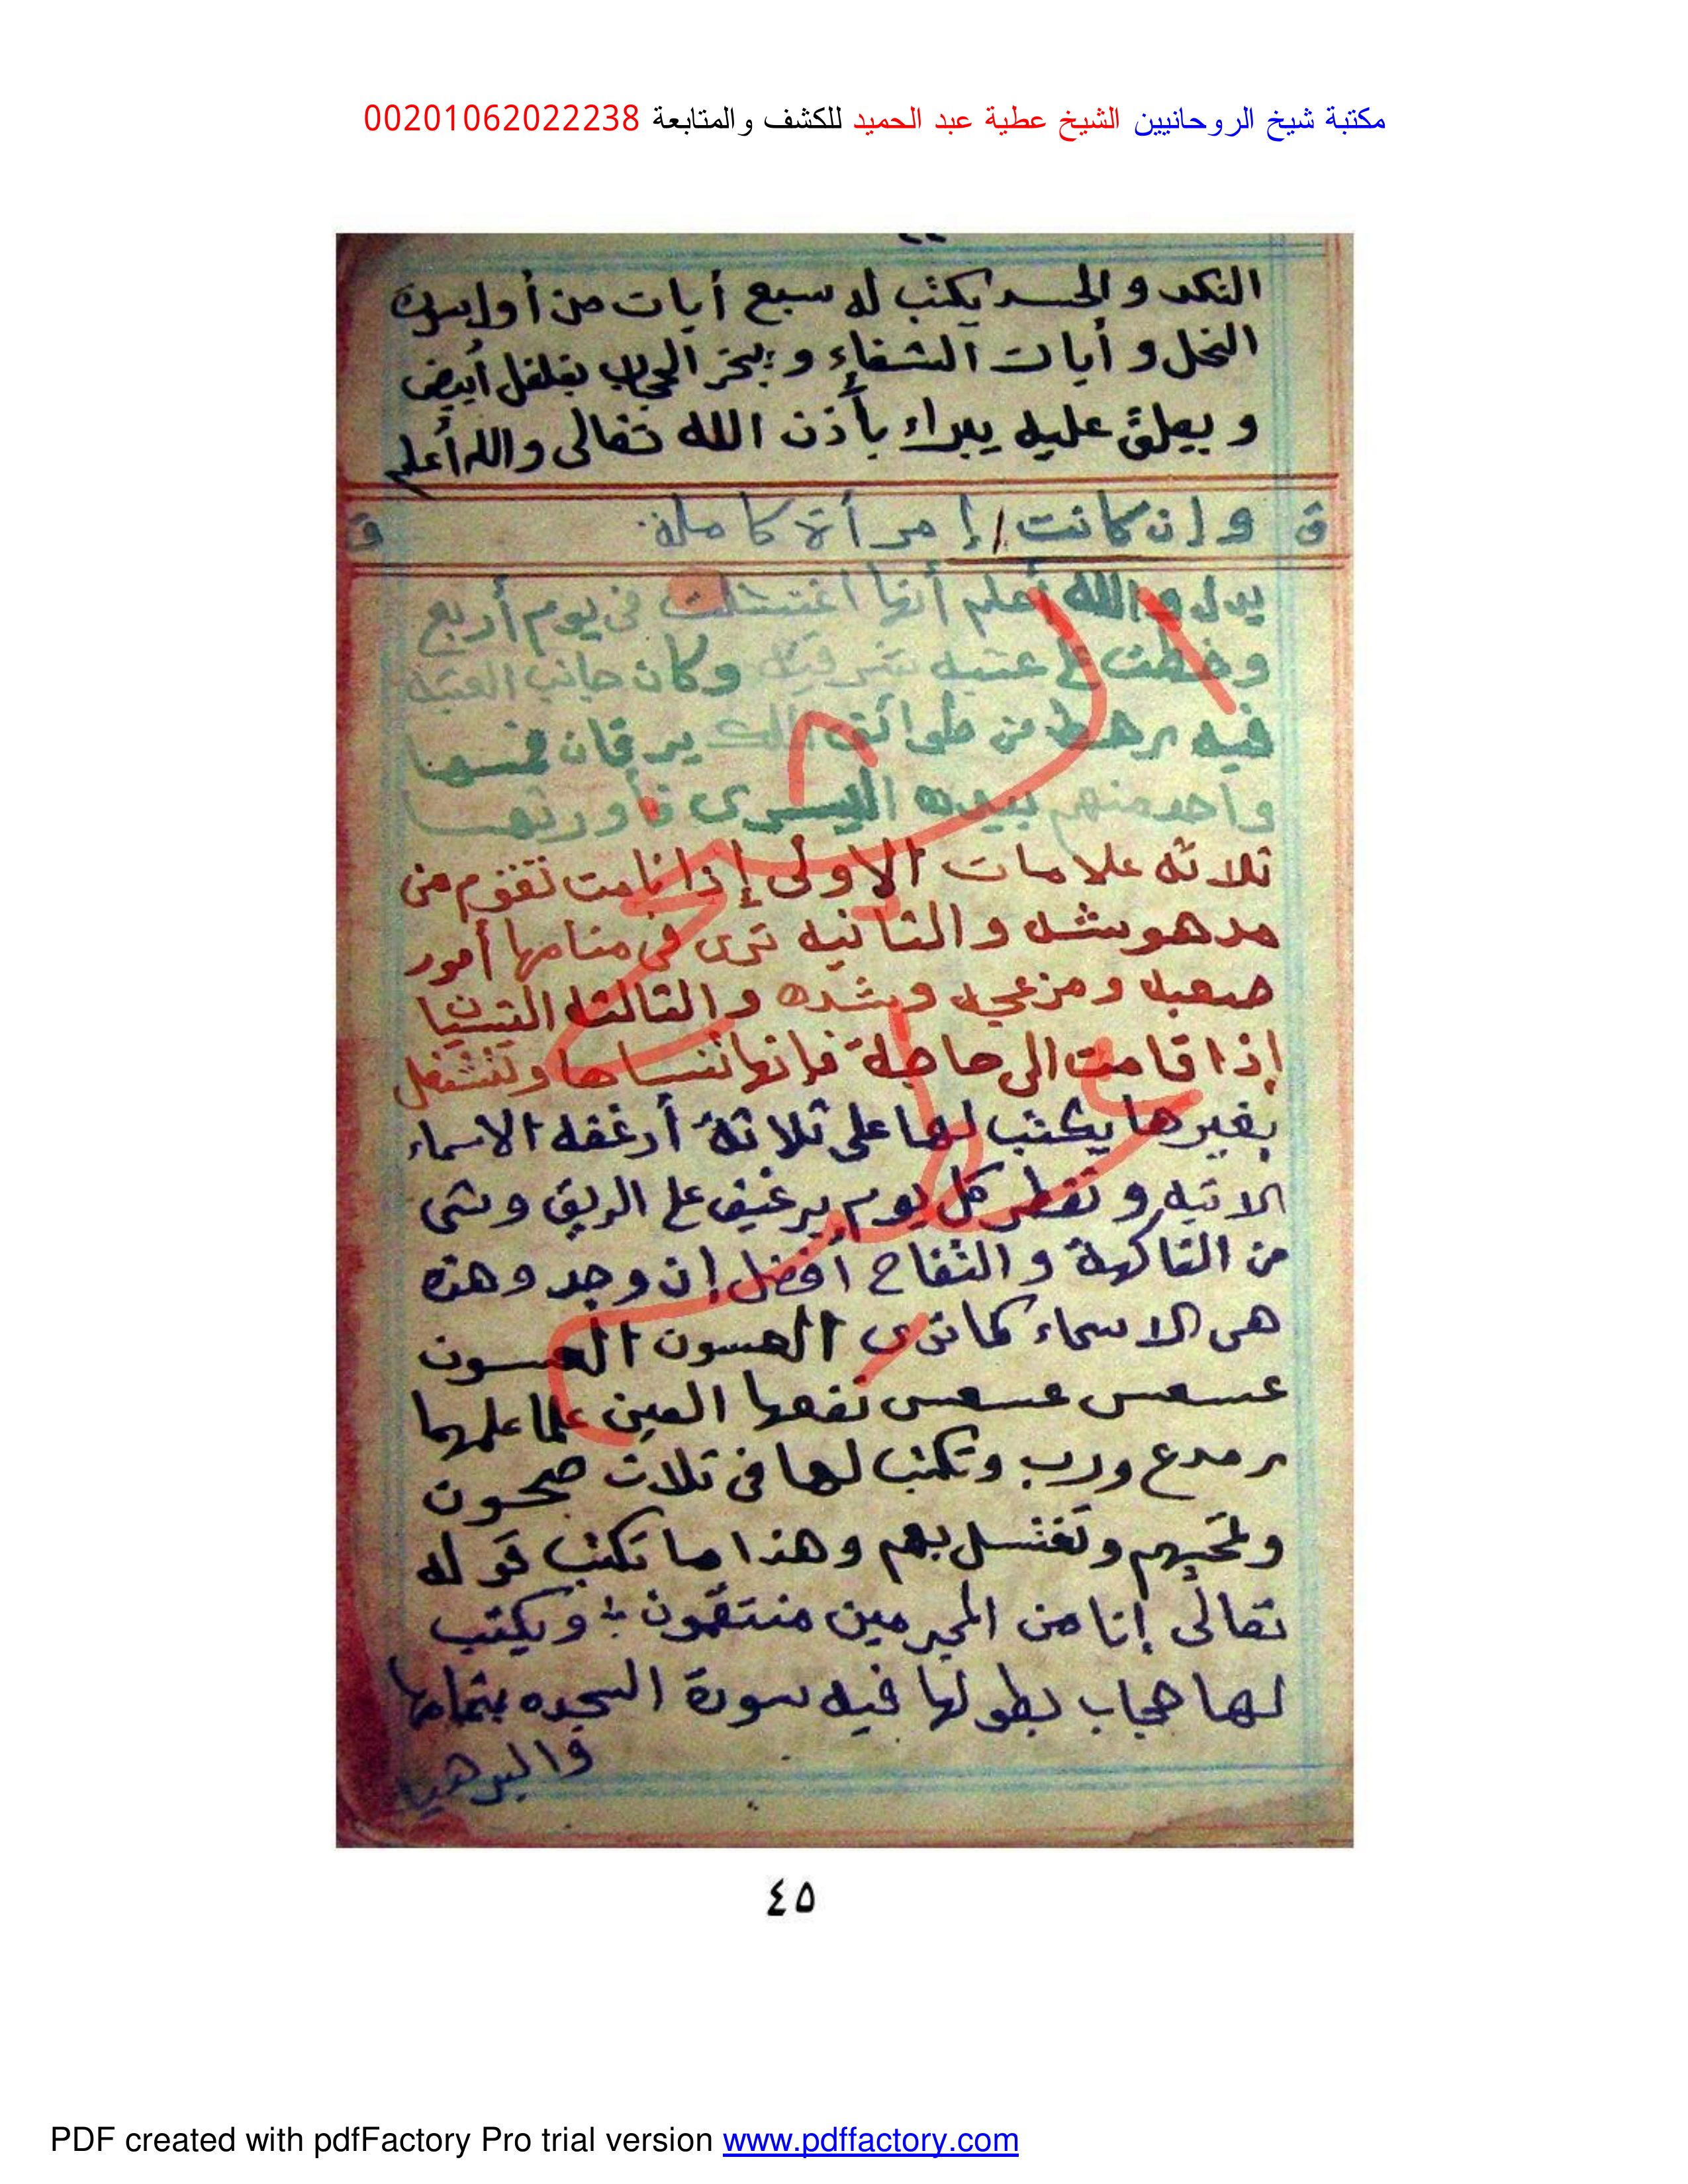 مكتبة شيخ الروحانيين الشيخ عطية عبد الحميد للكشف والمتابعة 00201062022238
النكد والحسد يكتب له سبع أيات من أول سورة
النحل و أيات الشفاء و يبخر الحجاب بفلفل أبيض
و يعلق عليه يبراء بأذن الله تعالى والله أعلم
ق وإن كانت / إمرأة كاملة ق
يدل والله أعلم أنها اغتسلت في يوم أربع
وخطت على عتبه شرقيه وكان جانب العتبه
فيه رهط من طوائف يرقان فمسها
واحد منهم بيده اليسرى فأورثها
ثلاثه علامات الاولى إذا نامت تقوم من
مدهوشه والثانيه ترى في منامها أمور
صعبه ومزعجه وشده والثالثه النسيان
إذا قامت الى حاجة فإنها تنساها وتنشغل
بغيرها يكتب لها على ثلاثة أرغفه الاسماء
الاتيه و تفطر كل يوم برغيف على الريق وشى
من الفاكهة و التفاح أفضل إن وجد وهذه
هى الاسماء كما ترى العسون العسون
عسعس عسعس نفعها العين علما علمهما
رمدع ورب وتكتب لها فى ثلاث صحون
وتمحيهم وتغتسل بهم وهذا ما تكتب قوله
تعالى إنا من المجرمين منتقمون ويكتب
لها حجاب بطولها فيه سورة السجده بتمامها
والبرهتيه
٤٥
PDF created with pdfFactory Pro trial version www.pdffactory.com